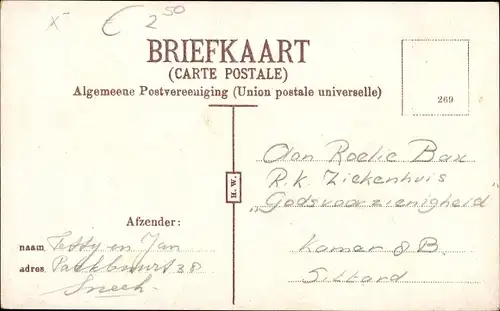 x € 2 50
BRIEFKAART
(CARTE POSTALE)
Algemeene Postvereeniging (Union postale universelle)
269
H. W.
Aan Roelie Bax
R.K. Ziekenhuis
„Godsvoorzienigheid"
Kamer 8 B.
Sittard
Afzender:
naam en Jan
adres 38
Sneek.